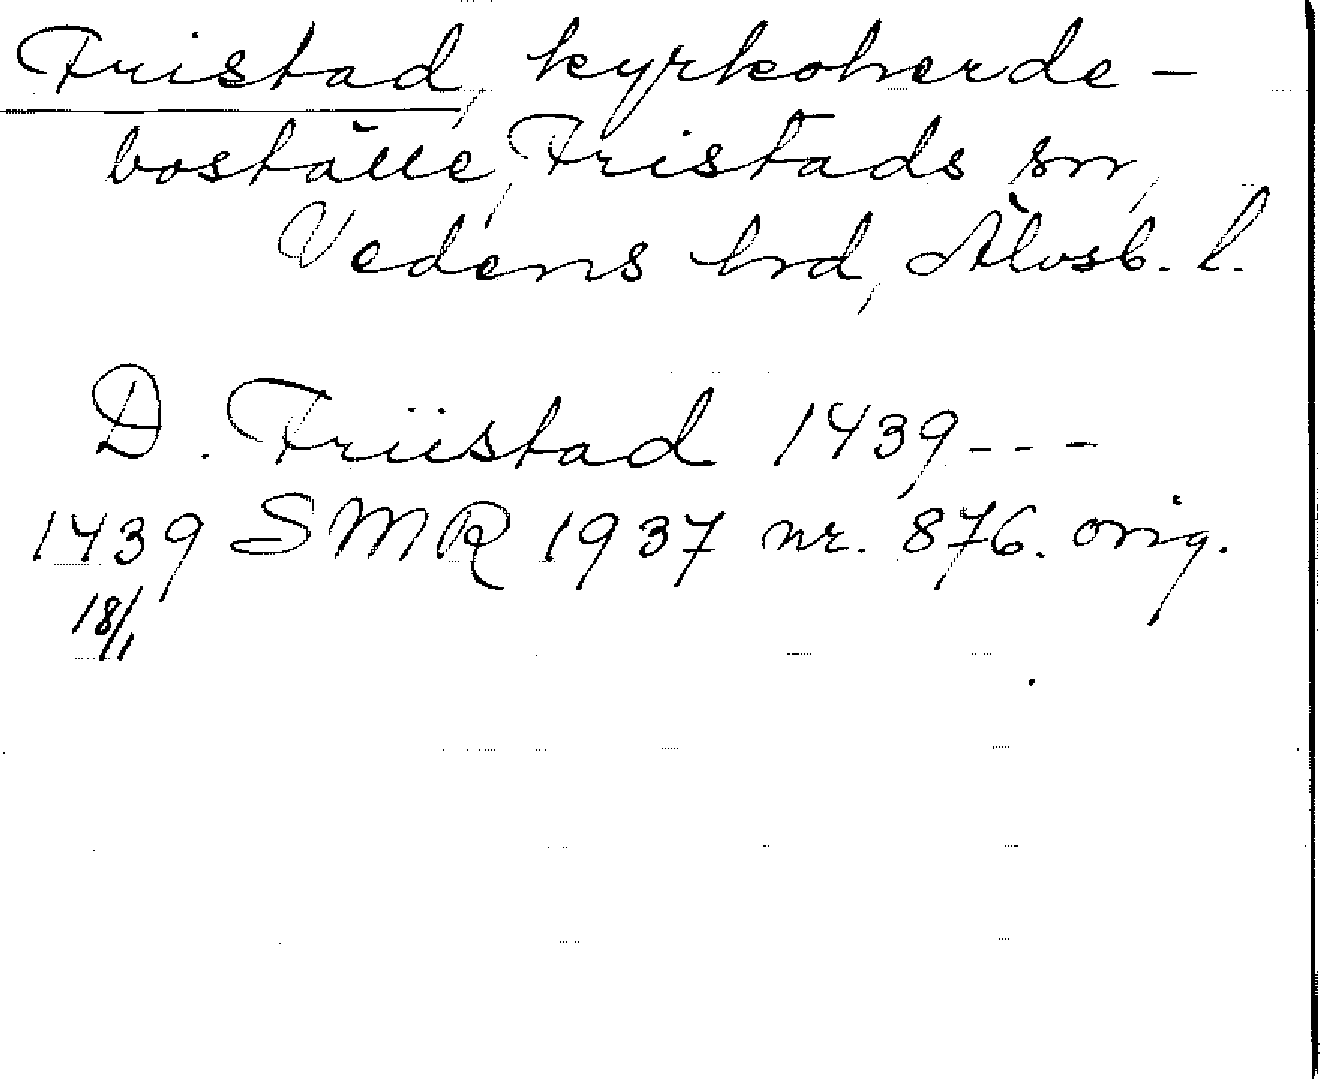 Fristad, kyrkoherde-
boställe, Fristads sn,
Vedens hrd, Älvsb. l.
D. Friistad 1439---
1439 SMR 1937 nr. 876. orig.
18/1